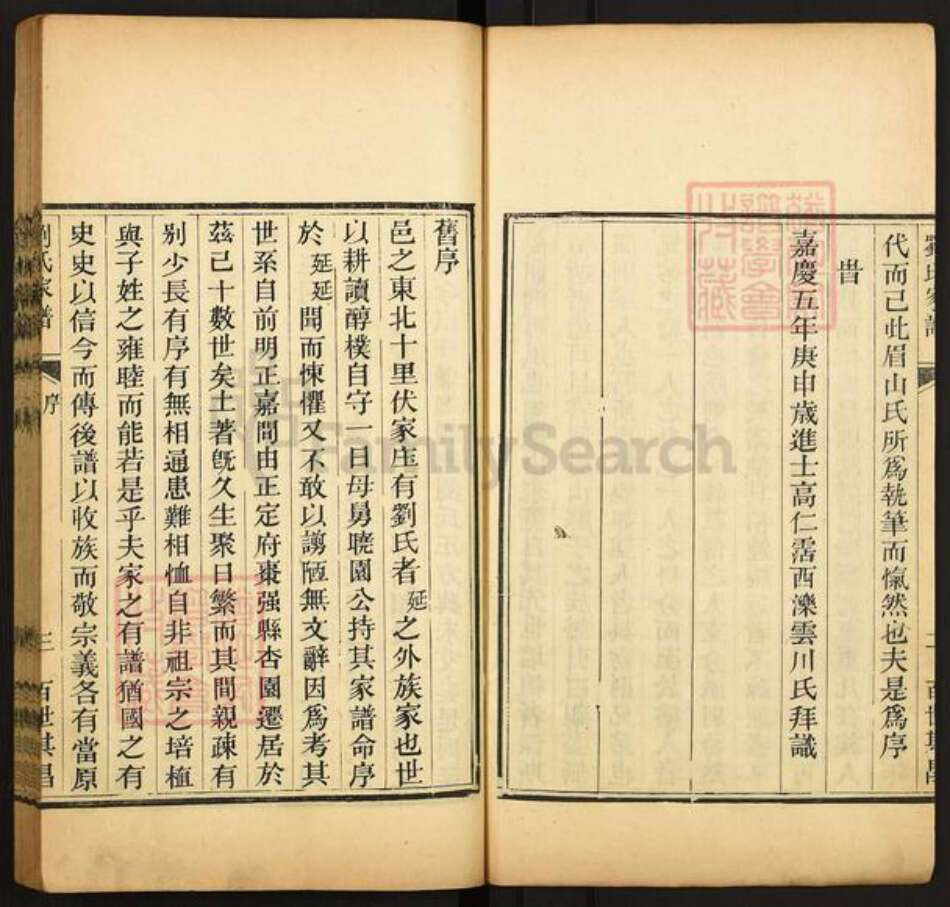 代而已此眉山氏所爲執筆而愾然也夫是爲序
旹
嘉慶五年庚申歲進士高仁霑西濼雲川氏拜識
劉氏家譜
二 百世其昌
舊序
邑之東北十里伏家庄有劉氏者延之外族家也世
以耕讀醇樸自守一日母舅曉園公持其家譜命序
於延延聞而悚懼又不敢以謭陋無文辭因爲考其
世系自前明正嘉間由正定府棗强縣杏園遷居於
茲已十數世矣土著旣久生聚日繁而其間親疎有
別少長有序有無相通患難相恤自非祖宗之培植
與子姓之雍睦而能若是乎夫家之有譜猶國之有
史史以信今而傳後譜以收族而敬宗義各有當原
劉氏家譜
序
三 百世其昌
FamilySearch